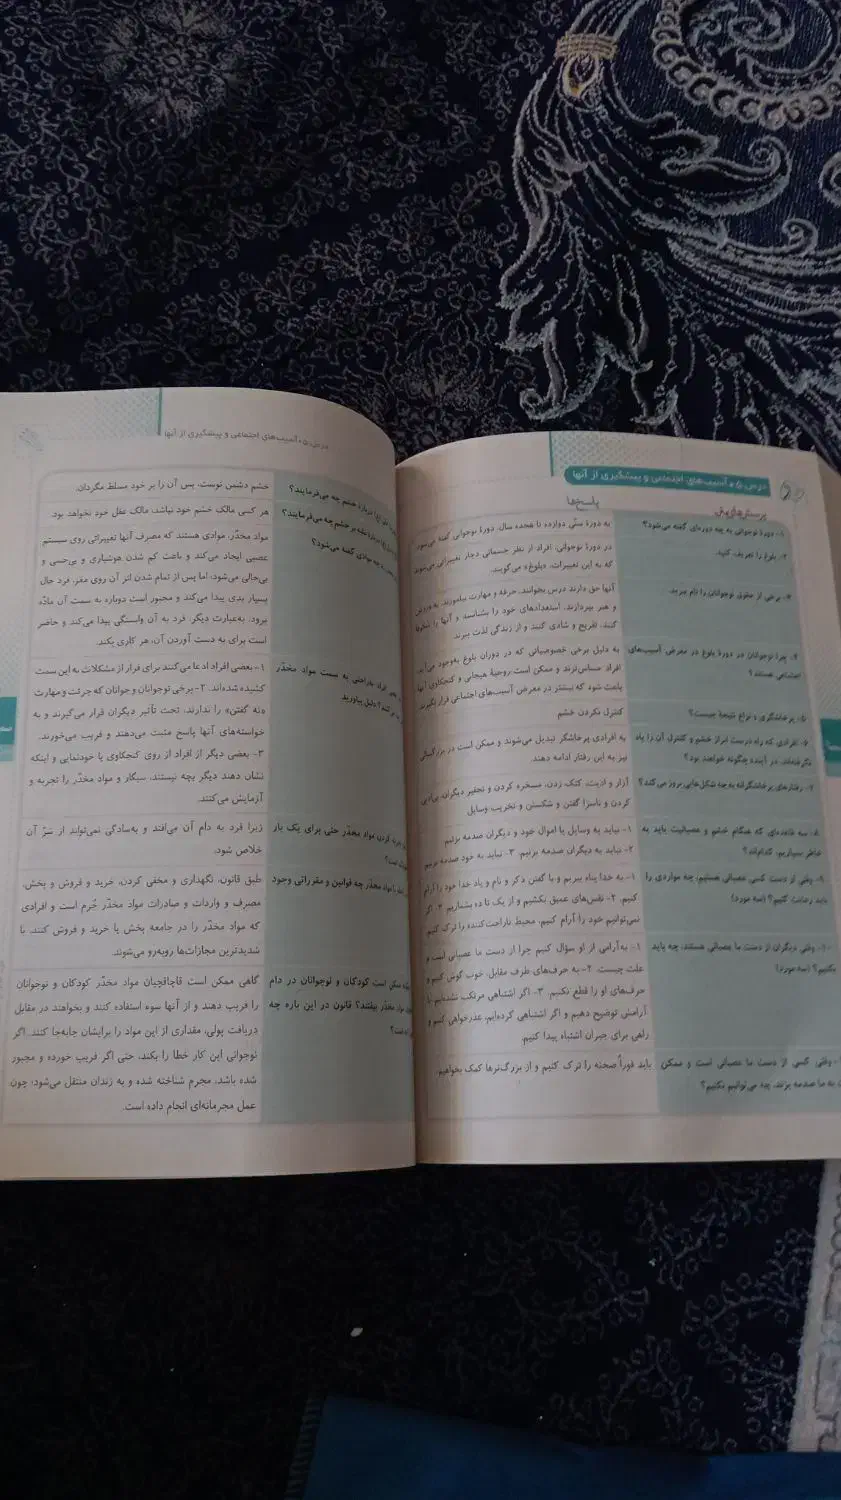 درس ۵ • آسیب‌های اجتماعی و پیشگیری از آنها
پرسش‌های متن
پاسخ‌ها
۱- دورهٔ نوجوانی به چه دوره‌ای گفته می‌شود؟
به دورهٔ سنّی دوازده تا هجده سال، دورهٔ نوجوانی گفته می‌شود.
۲- بلوغ را تعریف کنید.
در دورهٔ نوجوانی، افراد از نظر جسمانی دچار تغییراتی می‌شوند
که به این تغییرات، «بلوغ» می‌گویند.
۳- برخی از حقوق نوجوانان را نام ببرید.
آنها حق دارند درس بخوانند، حرفه و مهارت بیاموزند، به ورزش
و هنر بپردازند، استعدادهای خود را بشناسند و آنها را
کنند، تفریح و شادی کنند و از زندگی لذت ببرند.
۴- چرا نوجوانان در دورهٔ بلوغ در معرض آسیب‌های
اجتماعی هستند؟
به دلیل برخی خصوصیاتی که در دوران بلوغ به‌وجود می‌آید،
افراد حساس‌ترند و ممکن است روحیهٔ هیجانی و کنجکاوی آنها
باعث شود که بیشتر در معرض آسیب‌های اجتماعی قرار بگیرند.
۵- پرخاشگری و نزاع نتیجهٔ چیست؟
کنترل نکردن خشم
۶- افرادی که راه درست ابراز خشم و کنترل آن را یاد
نگرفته‌اند، در آینده چگونه خواهند بود؟
به افرادی پرخاشگر تبدیل می‌شوند و ممکن است در بزرگسالی
نیز به این رفتار ادامه دهند.
۷- رفتارهای پرخاشگرانه به چه شکل‌هایی بروز می‌کند؟
آزار و اذیت، کتک زدن، مسخره کردن و تحقیر دیگران، بی‌ادبی
کردن و ناسزا گفتن و شکستن و تخریب وسایل
۸- سه قاعده‌ای که هنگام خشم و عصبانیت باید به
خاطر بسپاریم، کدام‌اند؟
۱- نباید به وسایل یا اموال خود و دیگران صدمه بزنیم.
۲- نباید به دیگران صدمه بزنیم. ۳- نباید به خود صدمه بزنیم.
۹- وقتی از دست کسی عصبانی هستیم، چه مواردی را
باید رعایت کنیم؟ (سه مورد)
۱- به خدا پناه ببریم و با گفتن ذکر و نام و یاد خدا خود را آرام
کنیم. ۲- نفس‌های عمیق بکشیم و از یک تا ده بشماریم. ۳- اگر
نمی‌توانیم خود را آرام کنیم، محیط ناراحت‌کننده را ترک کنیم.
۱۰- وقتی دیگران از دست ما عصبانی هستند، چه باید
بکنیم؟ (سه مورد)
۱- به‌آرامی از او سؤال کنیم چرا از دست ما عصبانی است و
علت چیست. ۲- به حرف‌های طرف مقابل، خوب گوش کنیم و
حرف‌های او را قطع نکنیم. ۳- اگر اشتباهی مرتکب نشده‌ایم با
آرامش توضیح دهیم و اگر اشتباهی کرده‌ایم، عذرخواهی کنیم و
راهی برای جبران اشتباه پیدا کنیم.
وقتی کسی از دست ما عصبانی است و ممکن
به ما صدمه بزند، چه می‌توانیم بکنیم؟
باید فوراً صحنه را ترک کنیم و از بزرگ‌ترها کمک بخواهیم.
درس ۵ • آسیب‌های اجتماعی و پیشگیری از آنها
دربارهٔ خشم چه می‌فرمایند؟
خشم دشمن توست، پس آن را بر خود مسلط مگردان.
دربارهٔ غلبه بر خشم چه می‌فرمایند؟
هر کسی مالک خشم خود نباشد، مالک عقل خود نخواهد بود.
به چه موادی گفته می‌شود؟
مواد مخدّر، موادی هستند که مصرف آنها تغییراتی روی سیستم
عصبی ایجاد می‌کند و باعث کم شدن هوشیاری و بی‌حسی و
بی‌حالی می‌شود، اما پس از تمام شدن اثر آن روی مغز، فرد حال
بسیار بدی پیدا می‌کند و مجبور است دوباره به سمت آن مادّه
برود. به‌عبارت دیگر، فرد به آن وابستگی پیدا می‌کند و حاضر
است برای به دست آوردن آن، هر کاری بکند.
افراد به‌راحتی به سمت مواد مخدّر
دلیل بیاورید.
۱- بعضی افراد ادعا می‌کنند برای فرار از مشکلات به این سمت
کشیده شده‌اند. ۲- برخی نوجوانان و جوانان که جرئت و مهارت
«نه گفتن» را ندارند، تحت تأثیر دیگران قرار می‌گیرند و به
خواسته‌های آنها پاسخ مثبت می‌دهند و فریب می‌خورند.
۳- بعضی دیگر از افراد از روی کنجکاوی یا خودنمایی و اینکه
نشان دهند دیگر بچه نیستند، سیگار و مواد مخدّر را تجربه و
آزمایش می‌کنند.
کردن مواد مخدّر حتی برای یک بار
است؟
زیرا فرد به دام آن می‌افتد و به‌سادگی نمی‌تواند از شرّ آن
خلاص شود.
مواد مخدّر چه قوانین و مقرراتی وجود
طبق قانون، نگهداری و مخفی کردن، خرید و فروش و پخش،
مصرف و واردات و صادرات مواد مخدّر جُرم است و افرادی
که مواد مخدّر را در جامعه پخش یا خرید و فروش کنند، با
شدیدترین مجازات‌ها روبه‌رو می‌شوند.
ممکن است کودکان و نوجوانان در دام
مواد مخدّر بیفتند؟ قانون در این باره چه
گاهی ممکن است قاچاقچیان مواد مخدّر کودکان و نوجوانان
را فریب دهند و از آنها سوء استفاده کنند و بخواهند در مقابل
دریافت پولی، مقداری از این مواد را برایشان جابه‌جا کنند. اگر
نوجوانی این کار خطا را بکند، حتی اگر فریب خورده و مجبور
شده باشد، مجرم شناخته شده و به زندان منتقل می‌شود؛ چون
عمل مجرمانه‌ای انجام داده است.